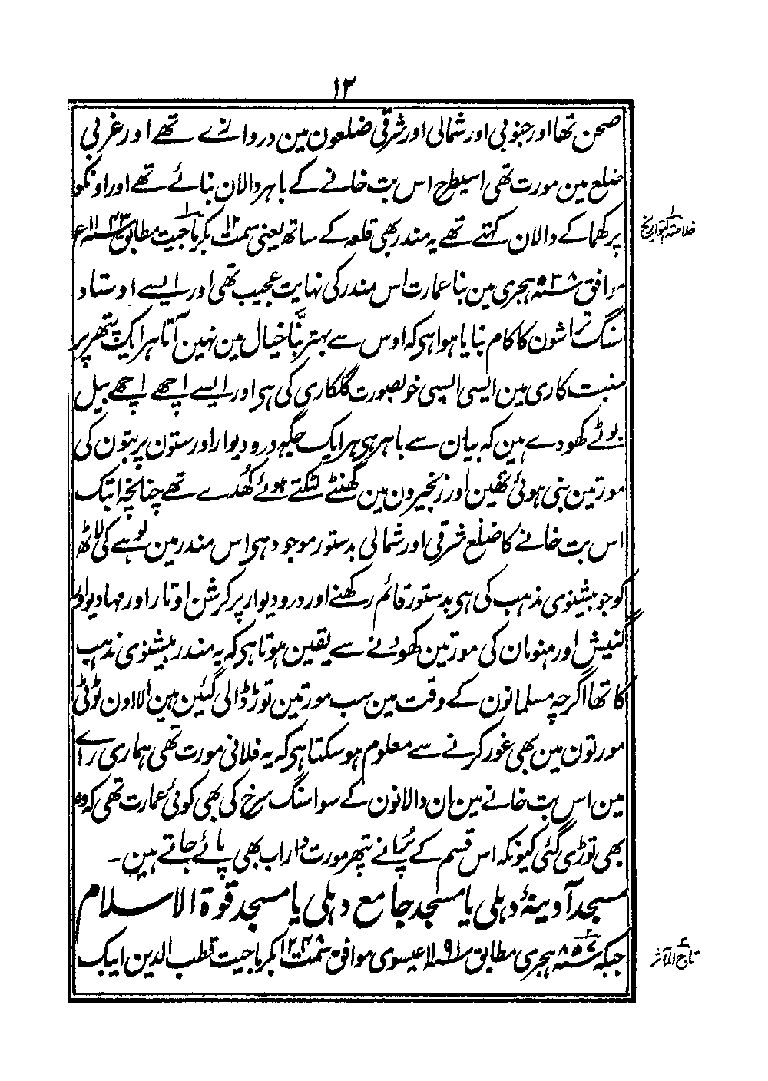 ١٣
صحن تھا اور جنوبی اور شمالی اور شرقی ضلعون مین دروانے تھے اور غربی
ضلع مین مورت تھی اسیطح اس بت خانے کے باہر دالان بنائے تھے اور اونکو
پرکھما کے دالان کہتے تھے یہ مندر بھی قلعہ کے ساتھ یعنی سمت بکرماجیت مطابق
خلاصۃ التواریخ
موافق ۵۳۸ ہجری مین بنا عمارت اس مندر کی نہایت عجیب تھی اور ایسے اوستاد
سنگ تراشون کا کام بنایا ہوا ہی کہ اوس سے بہتر بننا خیال مین نہین آتا ہر ایک پتھر پر
منبت کاری مین ایسی ایسی خوبصورت گلکاری کی ہی اور ایسے اچھے اچھے بیل
بوٹے کھودے ہین کہ بیان سے باہر ہی ہر ایک جگہہ درودیوار اور ستون پر بتون کی
مورتین بنی ہوئی تھین اور زنجیرون مین گھنٹے لٹکتے ہوئے کُھدے تھے چنانچہ ابتک
اس بت خانے کا ضلع شرقی اور شمالی بدستور موجود ہی اس مندر مین لوہے کی لاٹھ
کو جو بیشنوی مذہب کی ہی بدستور قائم رکھنے اور درودیوار پر کرشن اوتار اور مہادیو اور
گنیش اور ہنومان کی مورتین کھودنے سے یقین ہوتا ہی کہ یہ مندر بیشنوی مذہب
کا تھا اگرچہ مسلمانون کے وقت مین سب مورتین توڑ ڈالی گئین ہین الا اون ٹوٹی
مورتون مین بھی غور کرنے سے معلوم ہوسکتا ہی کہ یہ فلانی مورت تھی ہماری رائے
مین اس بت خانے مین ان دالانون کے سوا سنگ سرخ کی بھی کوئی عمارت تھی کہ وہ
بھی توڑی گئی کیونکہ اس قسم کے پُرانے پتھر مورت دار اب بھی پائے جاتے ہین ۔
مسجد آدینۂ دہلی یا مسجد جامع دہلی یا مسجد قوۃ الاسلام
جبکہ ۵۸۷ ہجری مطابق ۱۱۹۱ عیسوی موافق سمت ۱۲۴۸ بکرماجیت قطب الدین ایبک
تاج المآثر